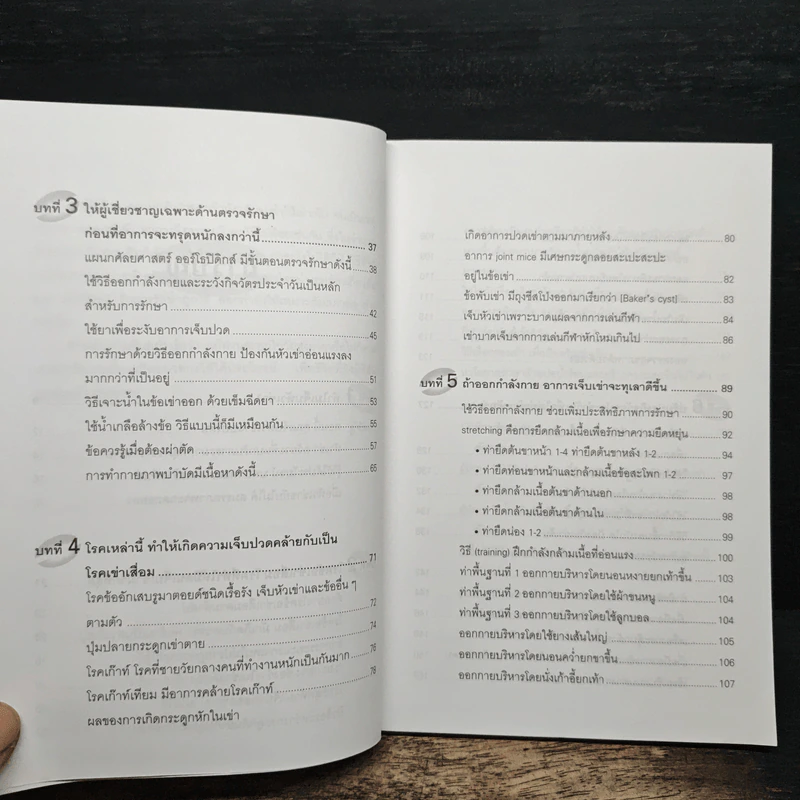 บทที่ 3 ให้ผู้เชี่ยวชาญเฉพาะด้านตรวจรักษา
ก่อนที่อาการจะทรุดหนักลงกว่านี้ 37
แผนกศัลยศาสตร์ ออร์โธปิดิกส์ มีขั้นตอนตรวจรักษาดังนี้ 38
ใช้วิธีออกกำลังกายและระวังกิจวัตรประจำวันเป็นหลัก
สำหรับการรักษา 42
ใช้ยาเพื่อระงับอาการเจ็บปวด 45
การรักษาด้วยวิธีออกกำลังกาย ป้องกันหัวเข่าอ่อนแรงลง
มากกว่าที่เป็นอยู่ 51
วิธีเจาะน้ำในข้อเข่าออก ด้วยเข็มฉีดยา 53
ใช้น้ำเกลือล้างข้อ วิธีแบบนี้ก็มีเหมือนกัน 55
ข้อควรรู้เมื่อต้องผ่าตัด 57
การทำกายภาพบำบัดมีเนื้อหาดังนี้ 65
บทที่ 4 โรคเหล่านี้ ทำให้เกิดความเจ็บปวดคล้ายกับเป็น
โรคเข่าเสื่อม 71
โรคข้ออักเสบรูมาตอยด์ชนิดเรื้อรัง เจ็บหัวเข่าและข้ออื่น ๆ
ตามตัว 72
ปุ่มปลายกระดูกเข่าตาย 74
โรคเก๊าท์ โรคที่ชายวัยกลางคนที่ทำงานหนักเป็นกันมาก 76
โรคเก๊าท์เทียม มีอาการคล้ายโรคเก๊าท์ 78
ผลของการเกิดกระดูกหักในเข่า
เกิดอาการปวดเข่าตามมาภายหลัง 80
อาการ joint mice มีเศษกระดูกลอยสะเปะสะปะ
อยู่ในข้อเข่า 82
ข้อพับเข่า มีถุงซีสโป่งออกมาเรียกว่า (Baker"s cyst) 83
เจ็บหัวเข่าเพราะบาดแผลจากการเล่นกีฬา 84
เข่าบาดเจ็บจากการเล่นกีฬาหักโหมเกินไป 86
บทที่ 5 ถ้าออกกำลังกาย อาการเจ็บเข่าจะทุเลาดีขึ้น 89
ใช้วิธีออกกำลังกาย ช่วยเพิ่มประสิทธิภาพการรักษา 90
stretching คือการยืดกล้ามเนื้อเพื่อรักษาความยืดหยุ่น 92
• ท่ายืดต้นขาหน้า 1-4 ท่ายืดต้นขาหลัง 1-2 94
• ท่ายืดท่อนขาหน้าและกล้ามเนื้อข้อสะโพก 1-2 97
• ท่ายืดกล้ามเนื้อต้นขาด้านนอก 98
• ท่ายืดกล้ามเนื้อต้นขาด้านใน 98
• ท่ายืดน่อง 1-2 99
วิธี (training) ฝึกกำลังกล้ามเนื้อที่อ่อนแรง 100
ท่าพื้นฐานที่ 1 ออกกายบริหารโดยนอนหงายยกเท้าขึ้น 103
ท่าพื้นฐานที่ 2 ออกกายบริหารโดยใช้ผ้าขนหนู 104
ท่าพื้นฐานที่ 3 ออกกายบริหารโดยใช้ลูกบอล 104
ออกกายบริหารโดยใช้ยางเส้นใหญ่ 105
ออกกายบริหารโดยนอนคว่ำยกขาขึ้น 106
ออกกายบริหารโดยนั่งเก้าอี้ยกเท้า 107